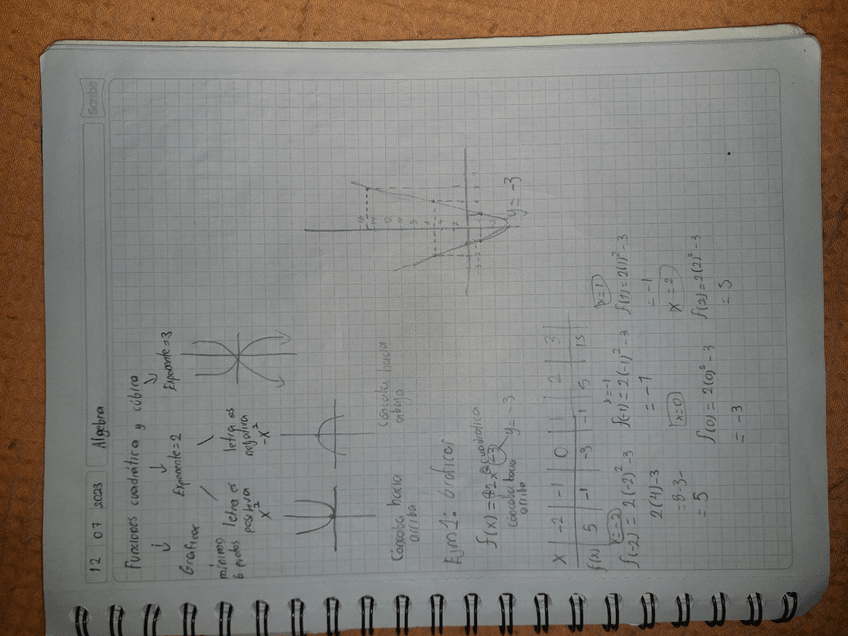 12 07 2023 Algebra Scribe
Funciones cuadrática y cúbica
Graficar Exponente=2 Exponente=3
mínimo
6 puntos
letra es
positiva
x²
letra es
negativa
-x²
Cóncava hacia
arriba
Cóncava hacia
abajo
Ejm 1: Graficar
cuadrática
y = -3
cóncava hacia
arriba
x | -2 | -1 | 0 | 1 | 2 | 3 |
f(x) | 5 | -1 | -3 | -1 | 5 | 15
x=-2
f(-2) = 2(-2)² -3
2(4)-3
=8-3-
= 5
x=-1
f(-1) = 2(-1)² -3
= -1
x=0
f(0) = 2(0)² -3
= -3
x=1
f(1) = 2(1)² -3
= -1
x=2
f(2) = 2(2)² -3
= 5
y = -3